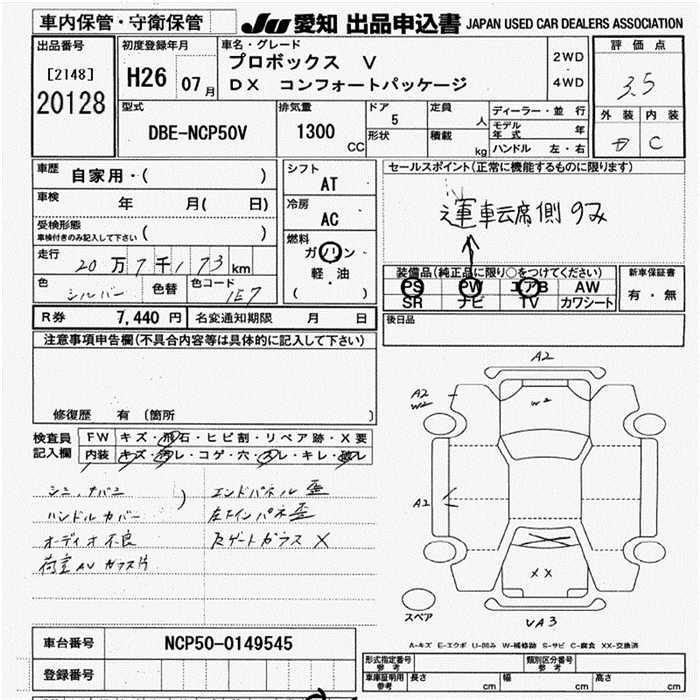 車内保管・守衛保管 JU 愛知 出品申込書 JAPAN USED CAR DEALERS ASSOCIATION
出品番号 初度登録年月 車名・グレード 評価点
[2148] H26 07月 プロボックス V 2WD 3.5
20128 DX コンフォートパッケージ 4WD
型式 排気量 ドア 定員 ディーラー・並 行 外装 内装
DBE-NCP50V 1300 CC 5 人 モデル年式 年 C
形状 積載 kg ハンドル 左・右
車歴 自家用・( ) シフト AT セールスポイント(正常に機能するものに限ります)
車検 年 月( 日) 冷房 AC 運転席側のみ
受検形態
車検付きのみ記入して下さい ( ) 燃料
走行 20万7千173km ガソリン
軽・油
( )
色 シルバー 色替 色コード 1E7
装備品(純正品に限り○をつけてください) 新車保証書
PS PW エアB AW 有・無
SR ナビ TV カワシート
R券 7,440 円 名変通知期限 月 日 後日品
注意事項申告欄(不具合内容等は具体的に記入して下さい)
修復歴 有 (箇所 )
検査員記入欄 FW キズ・飛石・ヒビ割・リペア跡・X要
内装 キズ・汚レ・コゲ・穴・スレ・キレ・破レ
エンドパネル 歪
ハンドルカバー 左下インパネ 歪
オーディオ不良 Rゲートガラス X
A2
A2
W2
W2
A2
XX
UA3
スペア
A-キズ E-エクボ U-凹み W-補修跡 S-サビ C-腐食 XX-交換済
車台番号 NCP50-0149545
登録番号
形式指定番号 参考 類別区分番号 参考
車庫証明用 参考 長さ cm 幅 cm 高さ cm